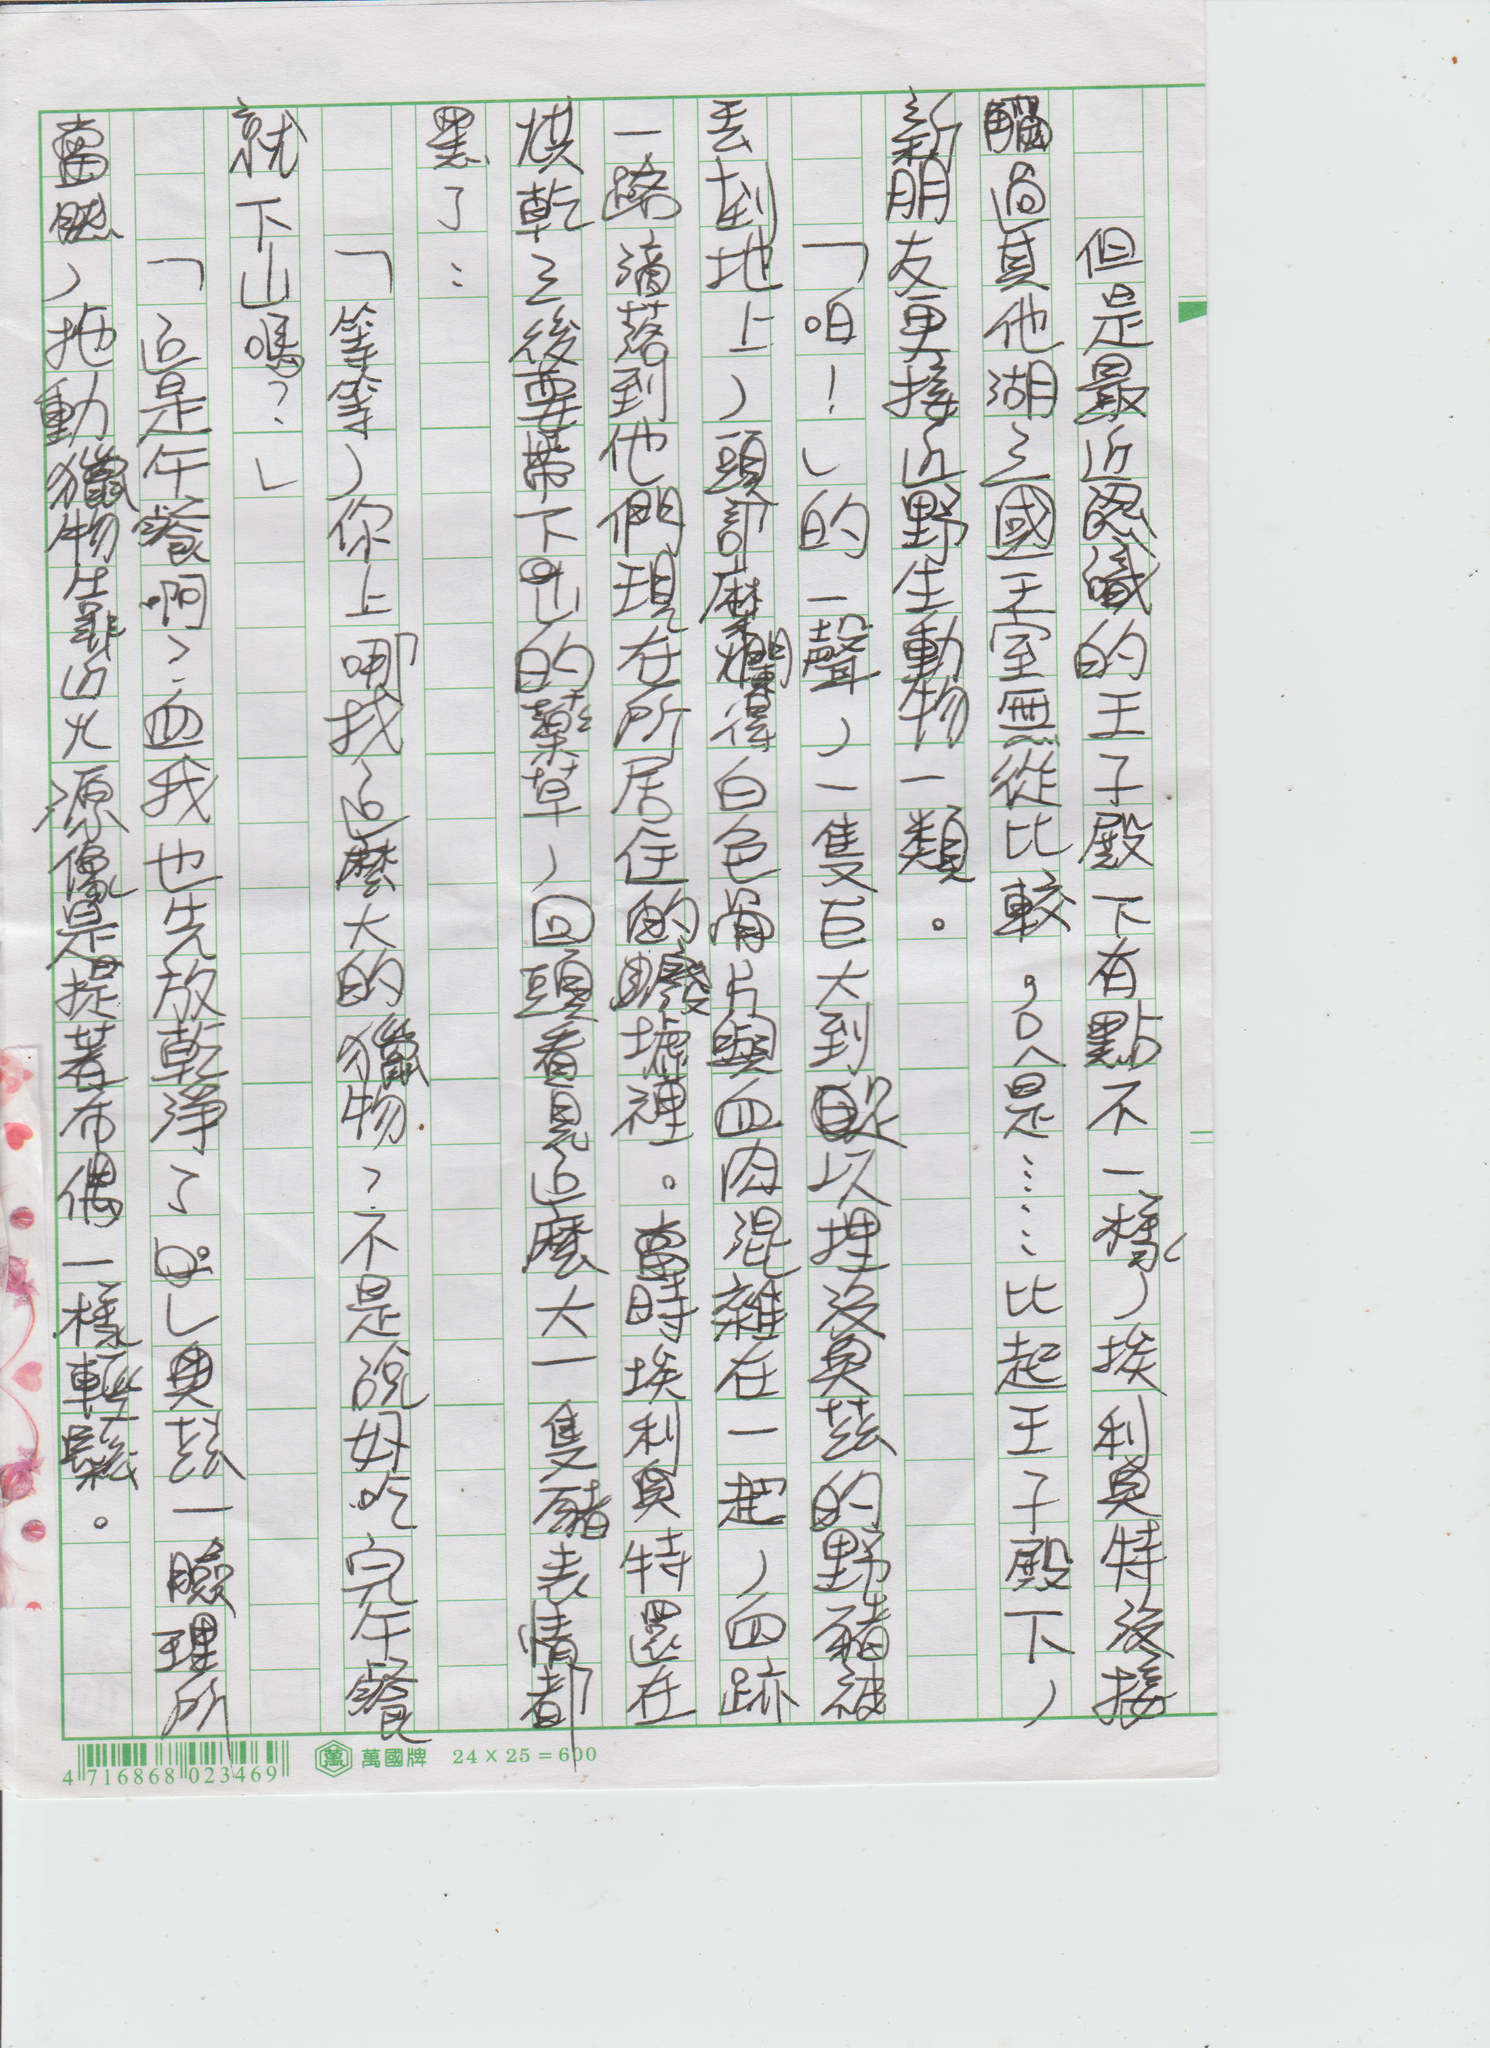 但是最近認識的王子殿下有點不一樣，埃利奧特沒接
觸過其他湖之國王室無從比較。只是……比起王子殿下，
新朋友更接近野生動物一類。
「咱！」的一聲，一隻巨大到足以埋沒奧茲的野豬被
丟到地上，頭部糜爛得白色骨片與血肉混雜在一起，血跡
一路滴落到他們現在所居住的廢墟裡。當時埃利奧特還在
烘乾之後要帶下山的藥草，回頭看見這麼大一隻豬表情都
黑了…
「等等，你上哪找這麼大的獵物？不是說好吃完午餐
就下山嗎？」
「這是午餐啊？血我也先放乾淨了。」奧茲一臉理所
當然，拖動獵物靠近火源像是提著布偶一樣輕鬆。
4 716868 023469
萬國牌 24×25=600